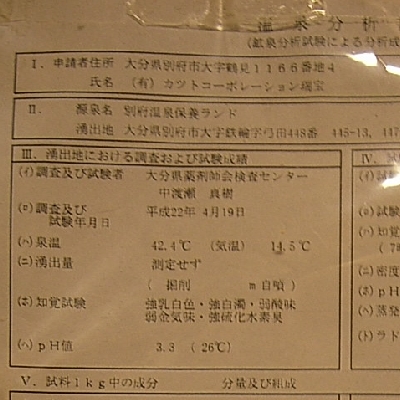 温泉分析
(鉱泉分析試験による分析成
Ⅰ. 申請者住所 大分県別府市大字鶴見1166番地4
氏名 (有) カツトコーポレーション瑞宝
Ⅱ. 源泉名 別府温泉保養ランド
湧出地 大分県別府市大字鉄輪字弓田448番 445-13, 447
Ⅲ. 湧出地における調査および試験成績 Ⅳ.
(イ)調査及び試験者 大分県薬剤師会検査センター (イ)試
中渡瀬 真樹
(ロ)調査及び 平成22年 4月19日 (ロ)試験
試験年月日
(ハ)泉温 42.4℃ (気温) 14.5℃ (ハ)知覚
(ニ)湧出量 測定せず (ニ)密度
( 掘削 m 自噴 ) (ホ)pH
(ホ)知覚試験 強乳白色・強白濁・弱酸味 (ヘ)蒸発
弱金気味・強硫化水素臭
(ト)ラド
(ヘ)pH値 3.3 (26℃)
Ⅴ. 試料1kg中の成分 分量及び組成